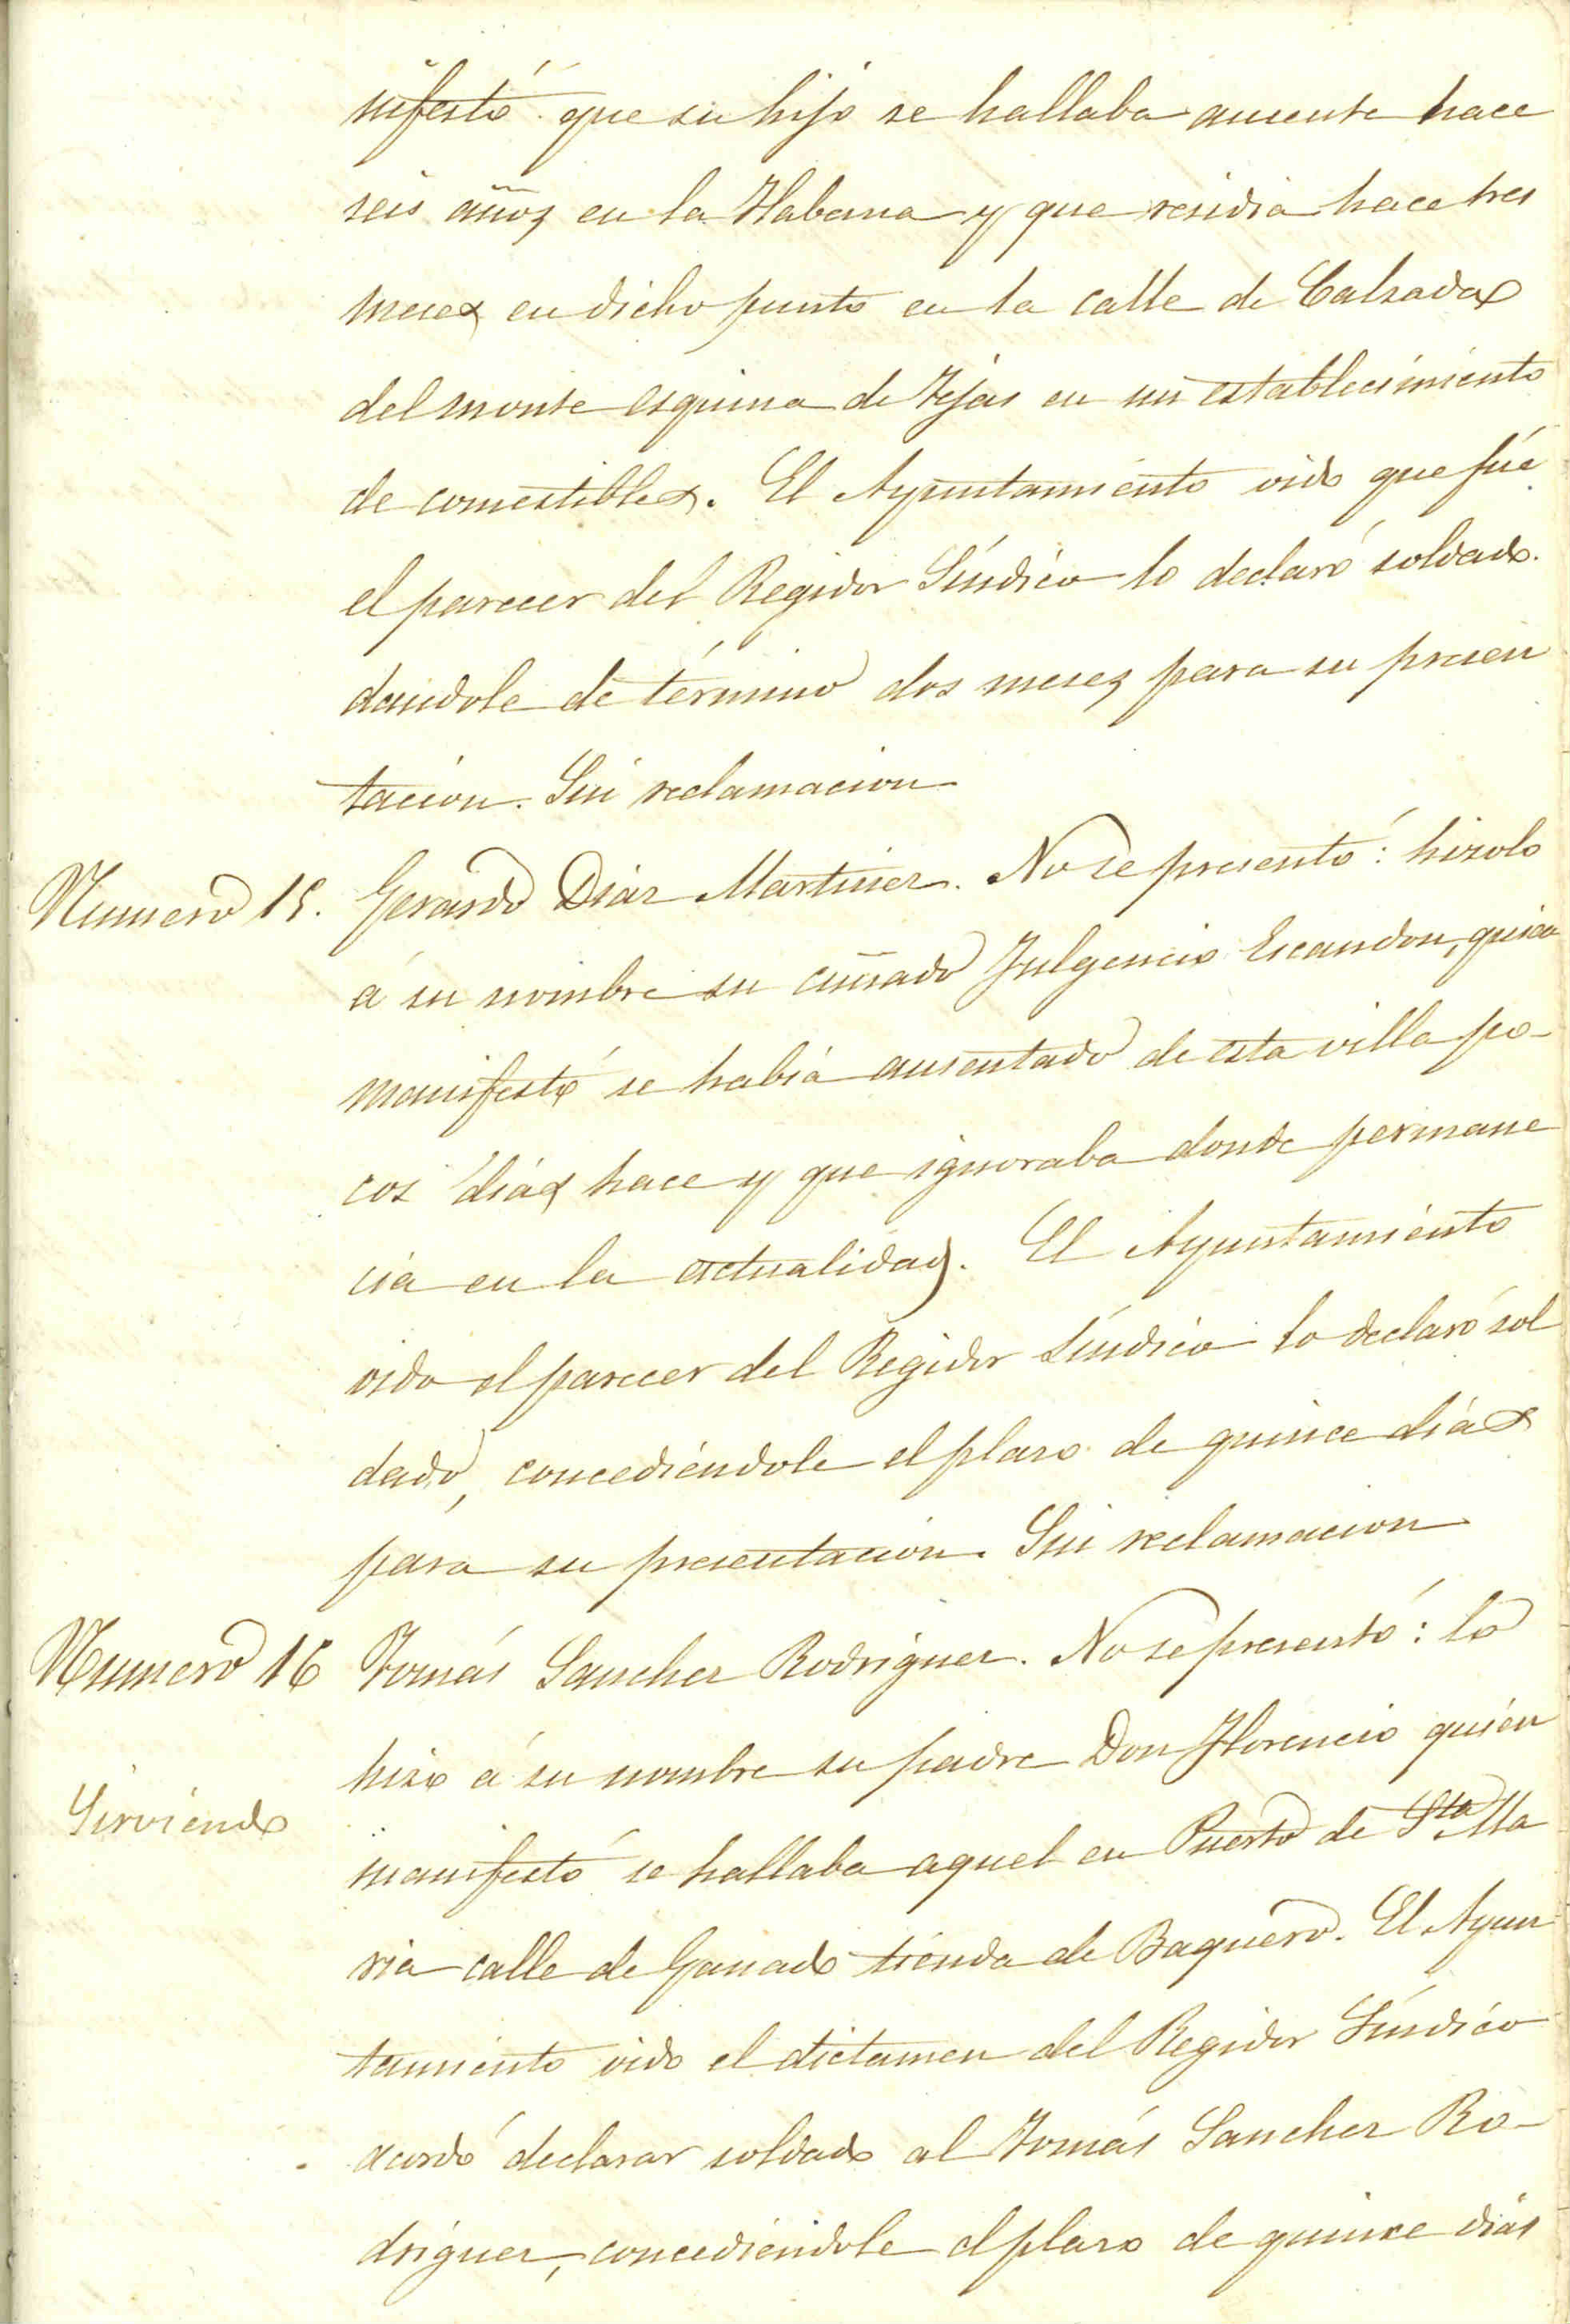 nifestó que su hijo se hallaba ausente hace
seis años en la Habana y que residia hace tres
meses en dicho punto en la calle de Calzada
del monte esquina de Tejas en un establecimiento
de comestibles. El Ayuntamiento oido que fué
el parecer del Regidor Síndico lo declaró soldado
dandole de término dos meses para su presen
tacion. Sin reclamacion
Numero 15. Gerardo Diaz Martinez. No se presentó: hizolo
á su nombre su cuñado Fulgencio Escandon, quien
manifestó se habia ausentado de esta villa po-
cos dias hace y que ignoraba donde permane
cia en la actualidad. El Ayuntamiento
oido el parecer del Regidor Síndico lo declaró sol
dado, concediéndole el plazo de quince dias
para su presentacion. Sin reclamacion
Numero 16 Tomás Sanchez Rodriguez. No se presentó: lo
hizo á su nombre su padre Don Florencio quien
Sirviendo
manifestó se hallaba aquel en Puerto de Sta Ma
ria calle de Ganado tienda de Baquero. El Ayun
tamiento oido el dictamen del Regidor Síndico
acordó declarar soldado al Tomás Sanchez Ro-
driguez, concediéndole el plazo de quince dias